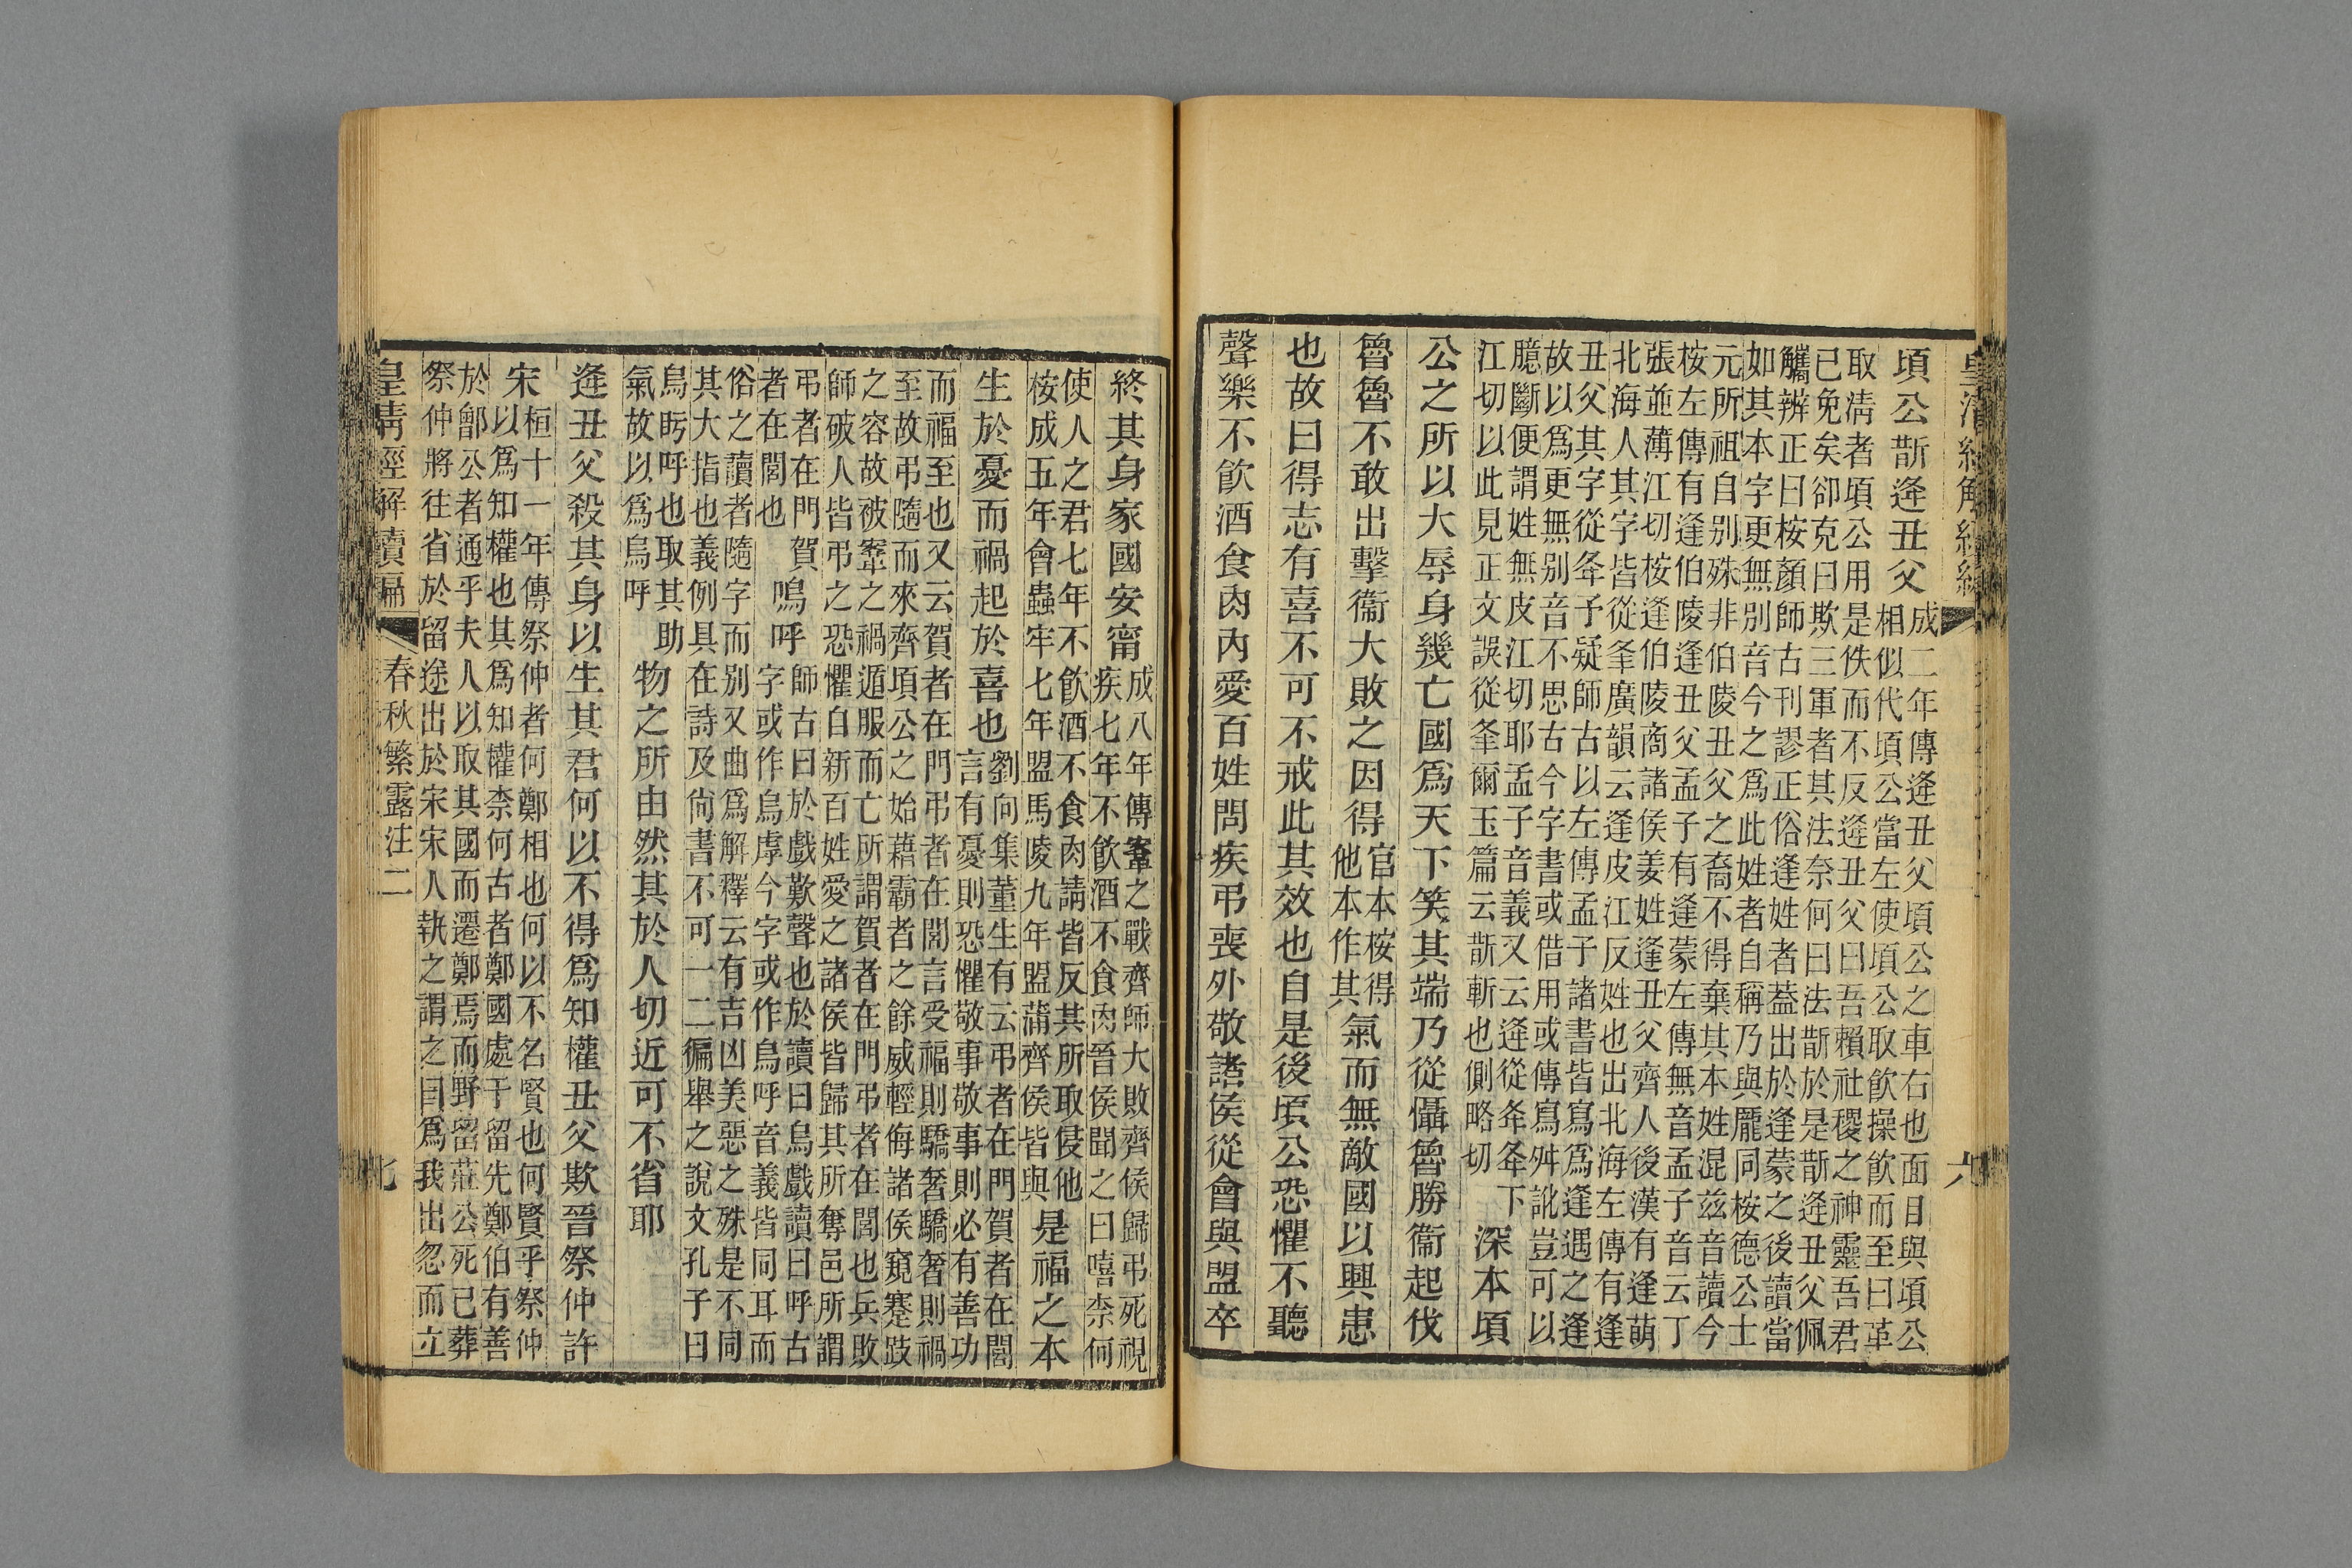 皇清經解續編
六
頃公斮逄丑父成二年傳逄丑父頃公之車右也面目與頃公
相似代頃公當左使頃公取飮操飮而至曰革
取淸者頃公用是佚而不反逄丑父曰吾賴社稷之神靈吾君
已免矣卻克曰欺三軍者其法奈何曰法斮於是斮逄丑父佩
觿辨正曰桉顏師古刊謬正俗逢姓者葢出於逢蒙之後讀當
如其本字更無別音今之爲此姓者自稱乃與龎同桉德公士
元所祖自别殊非伯陵丑父之裔不得棄其本姓混茲音讀今
桉左傳有逢伯陵逢丑父孟子有逢蒙左傳無音孟子音云丁
張並薄江切桉逢伯陵商諸侯姜姓逢丑父齊人後漢有逢萌
北海人其字皆從夆廣韻云逄皮江反姓也出北海左傳有逢
丑父其字從夅予疑師古以左傳孟子諸書皆寫爲逢遇之逢
故以爲更無别音不思古今字書或借用或傳寫舛訛豈可以
臆斷便謂姓無皮江切耶孟子音義又云逄從夅夅下
江切以此見正文誤從夆爾玉篇云斮斬也側略切深本頃
公之所以大辱身幾亡國爲天下笑其端乃從懾魯勝衞起伐
魯魯不敢出擊衞大敗之因得官本桉得他本作其氣而無敵國以興患
也故曰得志有喜不可不戒此其效也自是後頃公恐懼不聽
聲樂不飮酒食肉內愛百姓問疾弔喪外敬諸侯從會與盟卒
終其身家國安甯成八年傳鞌之戰齊師大敗齊侯歸弔死視
疾七年不飮酒不食肉晉侯聞之曰嘻柰何
使人之君七年不飮酒不食肉請皆反其所取侵他
桉成五年會蟲牢七年盟馬陵九年盟蒲齊侯皆與是福之本
生於憂而禍起於喜也劉向集董生有云弔者在門賀者在閭
言有憂則恐懼敬事敬事則必有善功
而福至也又云賀者在門弔者在閭言受福則驕奢驕奢則禍
至故弔隨而來齊頃公之始藉霸者之餘威輕侮諸侯窺蹇跂
之容故被鞌之禍遁服而亡所謂賀者在門弔者在閭也兵敗
師破人皆弔之恐懼自新百姓愛之諸侯皆歸其所奪邑所謂
弔者在門賀
者在閭也嗚呼師古曰於戲歎聲也於讀曰烏戲讀曰呼古
字或作烏虖今字或作烏呼音義皆同耳而
俗之讀者隨字而别又曲爲解釋云有吉凶美惡之殊是不同
其大指也義例具在詩及尙書不可一二徧舉之說文孔子曰
烏盻呼也取其助
氣故以爲烏呼物之所由然其於人切近可不省耶
逄丑父殺其身以生其君何以不得爲知權丑父欺晉祭仲許
宋桓十一年傳祭仲者何鄭相也何以不名賢也何賢乎祭仲
以爲知權也其爲知權柰何古者鄭國處于留先鄭伯有善
於鄶公者通乎夫人以取其國而遷鄭焉而野留莊公死已葬
祭仲將往省於留塗出於宋宋人執之謂之曰爲我出忽而立
皇淸經解續編
春秋繁露注二
七